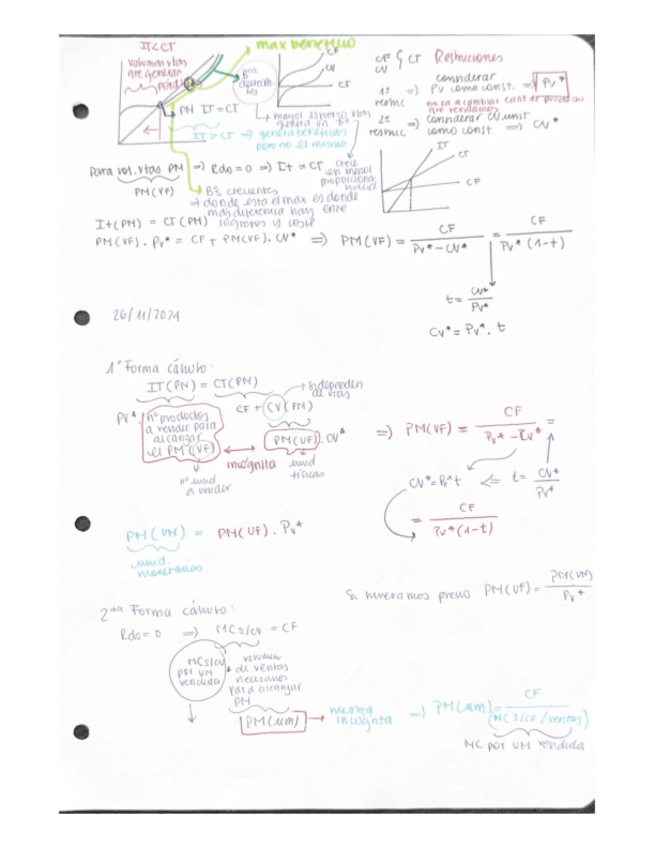 IT<CT
max beneficio
volumen vtas
que generan
pérdida
Bºs
decrecientes
CF
CV
CT
PM IT=CT
IT>CT => genera beneficios
pero no el mismo
menor esfuerzo vtas
genera un
crece
en menor
proporcionalidad
CF
CV
CT Restricciones
1ª
restricc => considerar
PV como const. => PV*
no va a cambiar cant de producto
que vendamos
2ª
restricc => considerar CV unit
como const => CV*
IT
CT
CF
Para vol. vtas PM => Rdo = 0 => It = CT
PM(VF)
Bºs crecientes
-> donde está el max es donde
más diferencia hay entre
ingresos y coste
It(PM) = CT(PM)
PM(VF) . Pv* = CF + PM(VF) . CV* => PM(VF) = CF / Pv* - CV* = CF / Pv* (1-t)
t = CV* / Pv*
CV* = Pv* . t
26/11/2024
1ª Forma cálculo:
IT(PM) = CT(PM)
CF + CV(PM)
-> dependen
de vtas
PV* . nº productos
a vender para
alcanzar
el PM (VF)
incógnita
PM(VF) . CV*
nº unid
a vender
unid
físicas
=> PM(VF) = CF / Pv* - CV* =
CV* = Pv* t <= t = CV* / Pv*
= CF / Pv* (1-t)
PM(VM) = PM(VF) . Pv*
unid.
monetarias
Si tuviéramos previo PM(VF) = PM(VM) / Pv*
2ªª Forma cálculo:
Rdo = 0 => MC s/cv = CF
MC s/cv
por UM
vendida
volumen
de ventas
necesarias
para alcanzar
PM
PM(um) -> misma
incógnita => PM(um) = CF / (MC s/cv / ventas)
MC por UM vendida